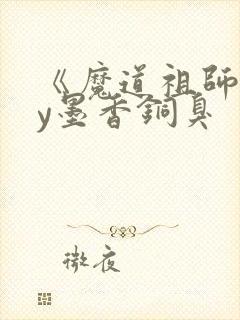 《魔道祖師
y墨香銅臭
微夜